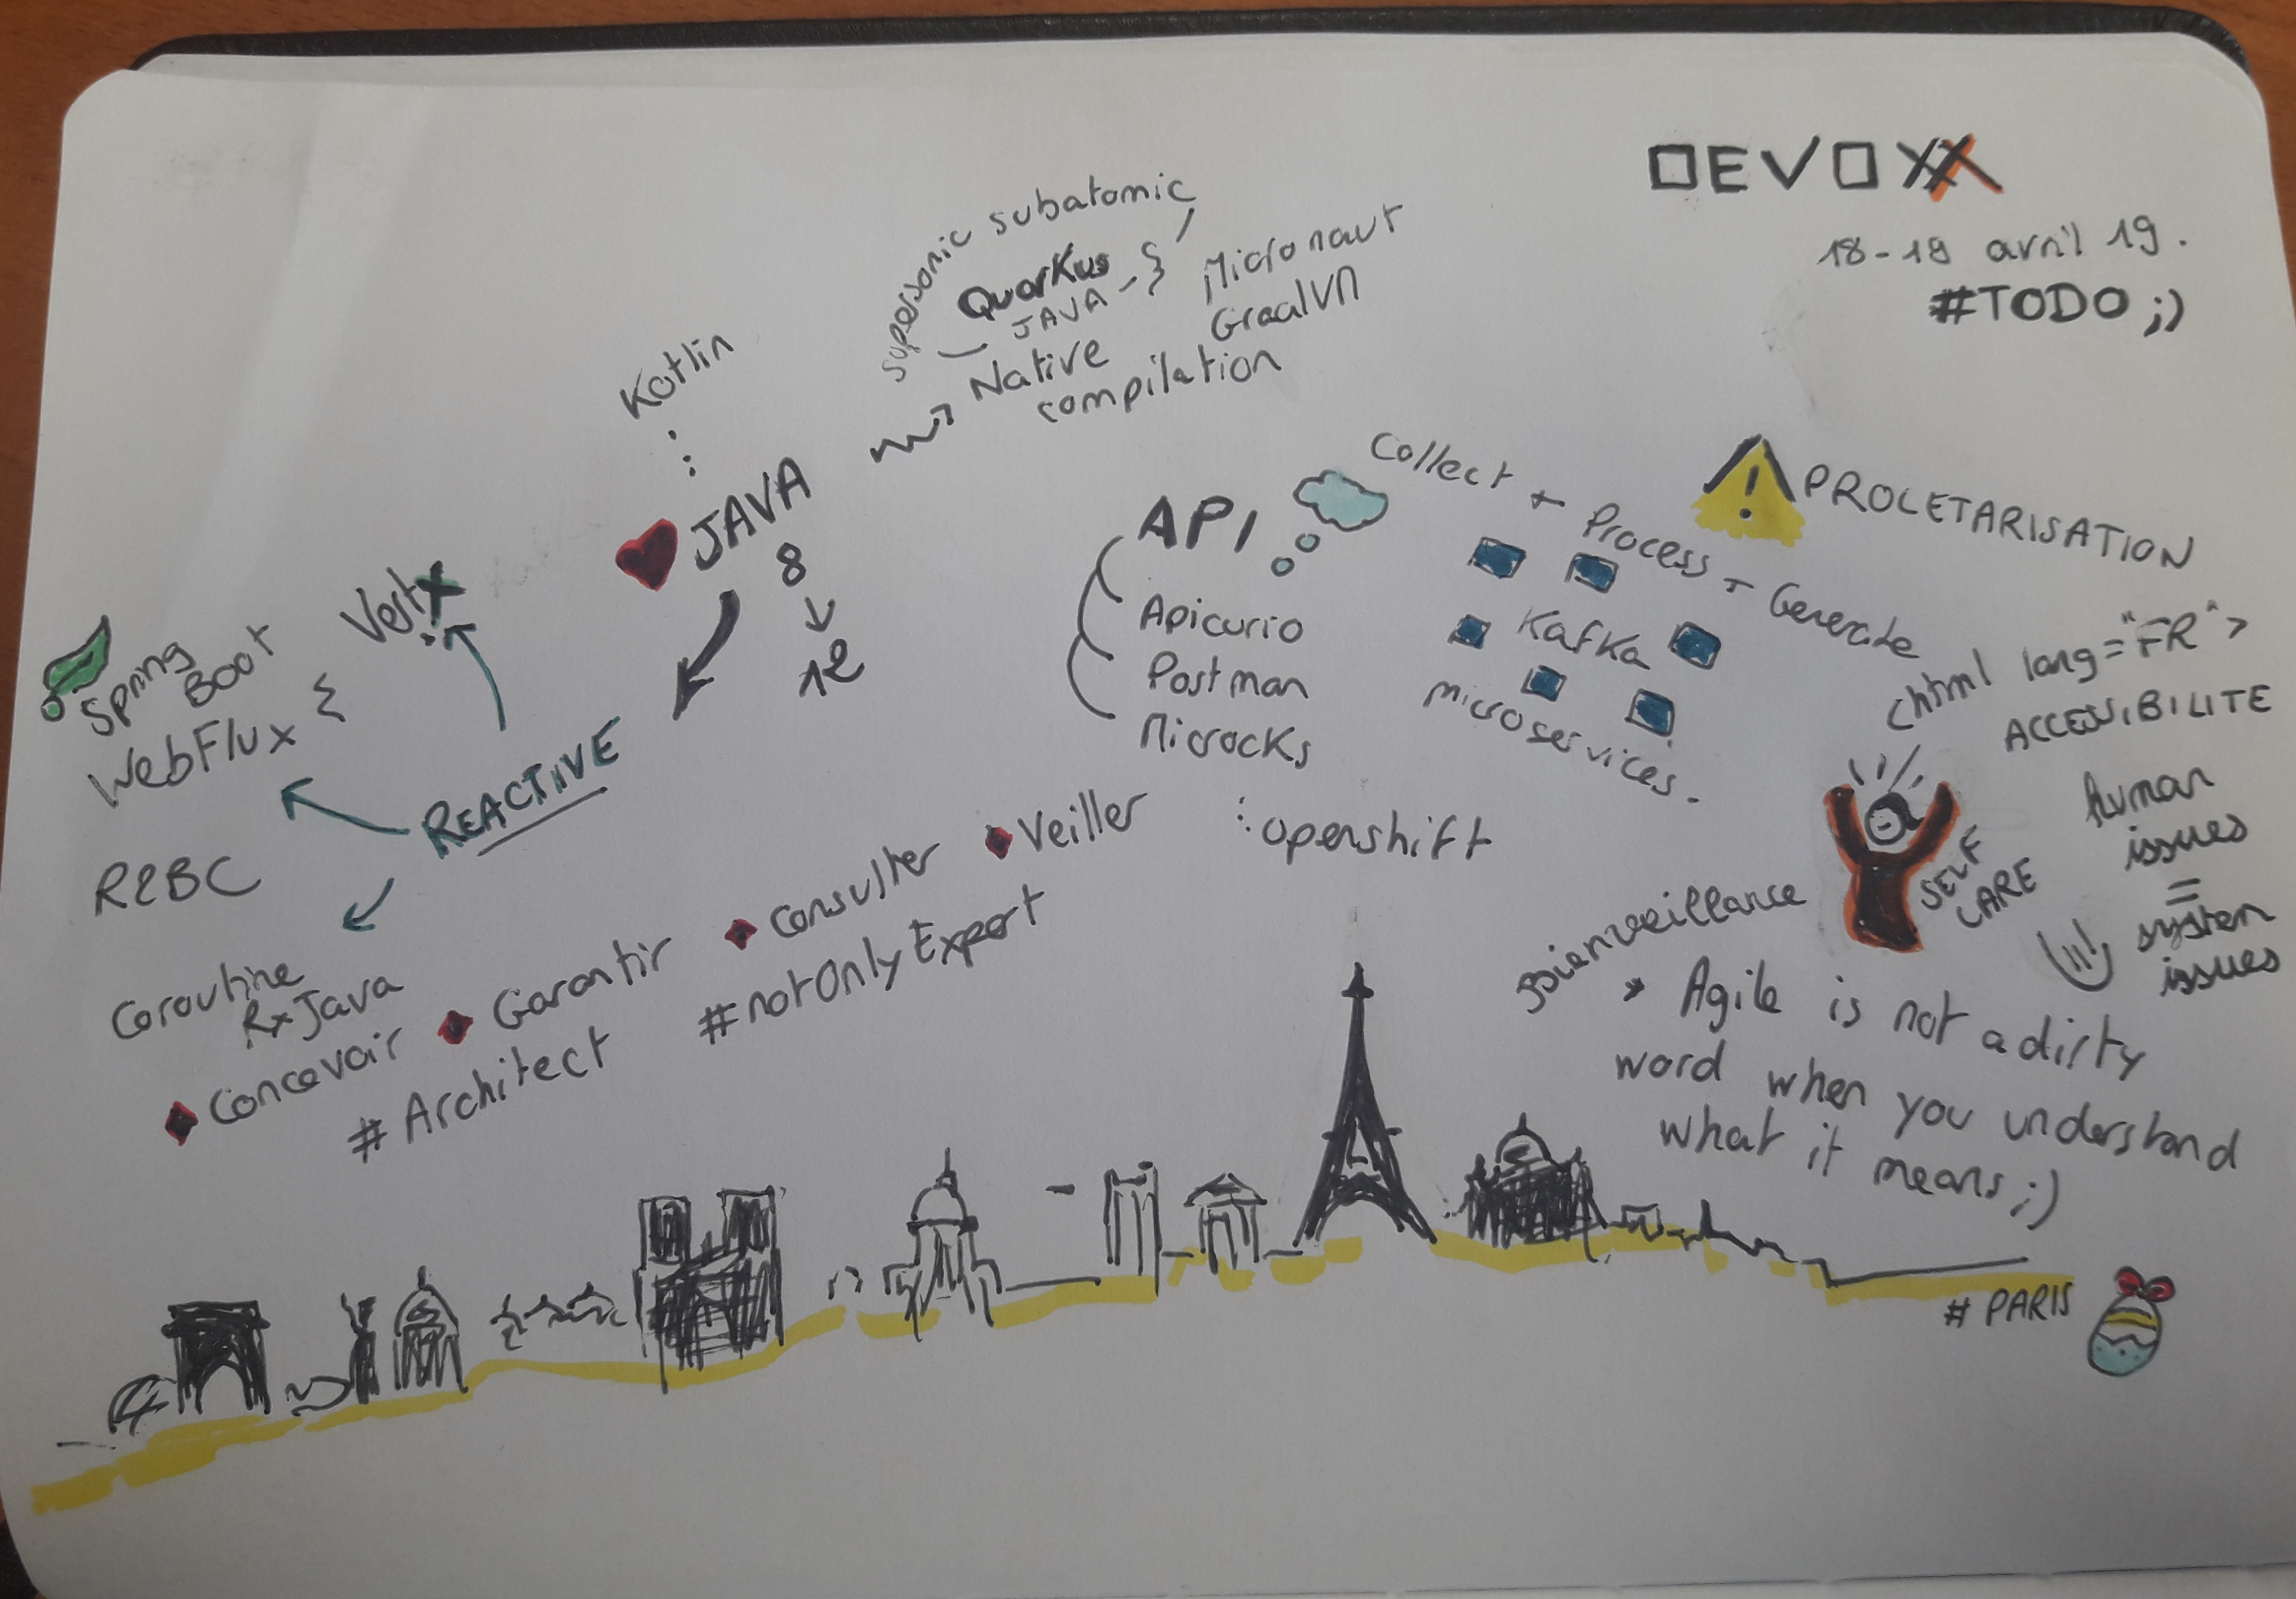 DEVOXX
18-19 avril 19.
#TODO ;)
supersonic subatomic
Quarkus
JAVA
Micronaut
GraalVM
Native
compilation
Kotlin
JAVA
8
12
Vert.x
Spring
Boot
WebFlux
REACTIVE
R2BC
Coroutine
RxJava
API
Apicurio
Postman
Microcks
Collect + Process + Generate
Kafka
microservices.
openshift
PROLETARISATION
<html lang="FR">
ACCESSIBILITE
human
issues
=
system
issues
SELF
CARE
Bienveillance
Agile is not a dirty
word when you understand
what it means ;)
Concevoir Garantir Consulter Veiller
#Architect #notOnlyExpert
# PARIS